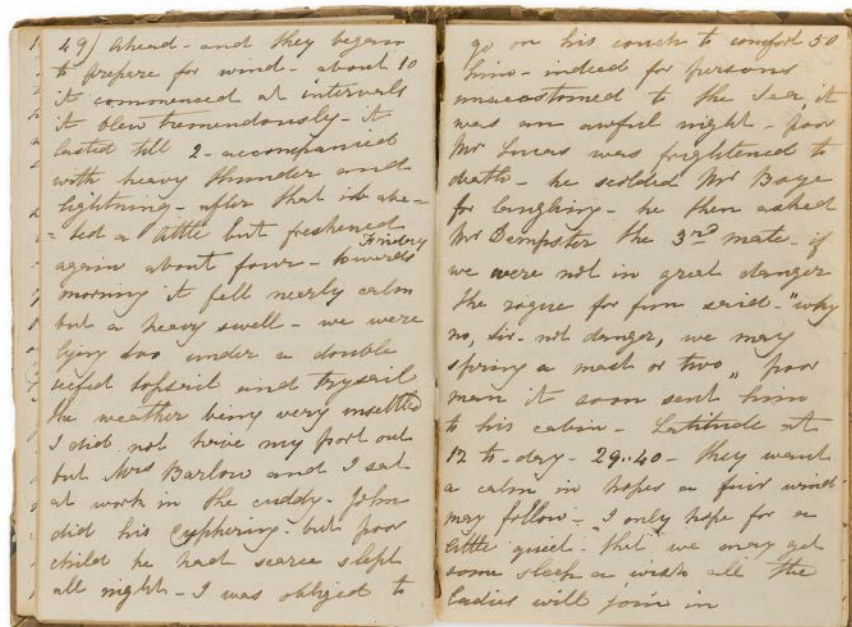 49) Ahead - and they began
to prepare for wind - about 10
it commenced at intervals
it blew tremendously - it
lasted till 2 - accompanied
with heavy thunder and
lightning - after that it aba=
=ted a little but freshened
again about four - towards Friday
morning it fell nearly calm
but a heavy swell - we were
lying too under a double
reefed topsail and trysail
the weather being very unsettled
I did not have my port out
but Mrs Barlow and I sat
at work in the cuddy - John
did his cyphering - but poor
child he had scarce slept
all night - I was obliged to
go on his couch to comfort 50
him - indeed for persons
unaccostomed to the Sea, it
was an awful night - poor
Mr Lucas was frightened to
death - he scolded Mr Baye
for laughing - he then asked
Mr Dempster the 3rd mate - if
we were not in great danger
the rogue for fun said - "why
no, Sir - not danger, we may
spring a mast or two" poor
man it soon sent him
to his cabin - Latitude at
12 to-day - 29..40 - they want
a calm in hopes a fair wind
may follow - I only hope for a
little quiet - that we may get
some sleep a wish all the
ladies will join in